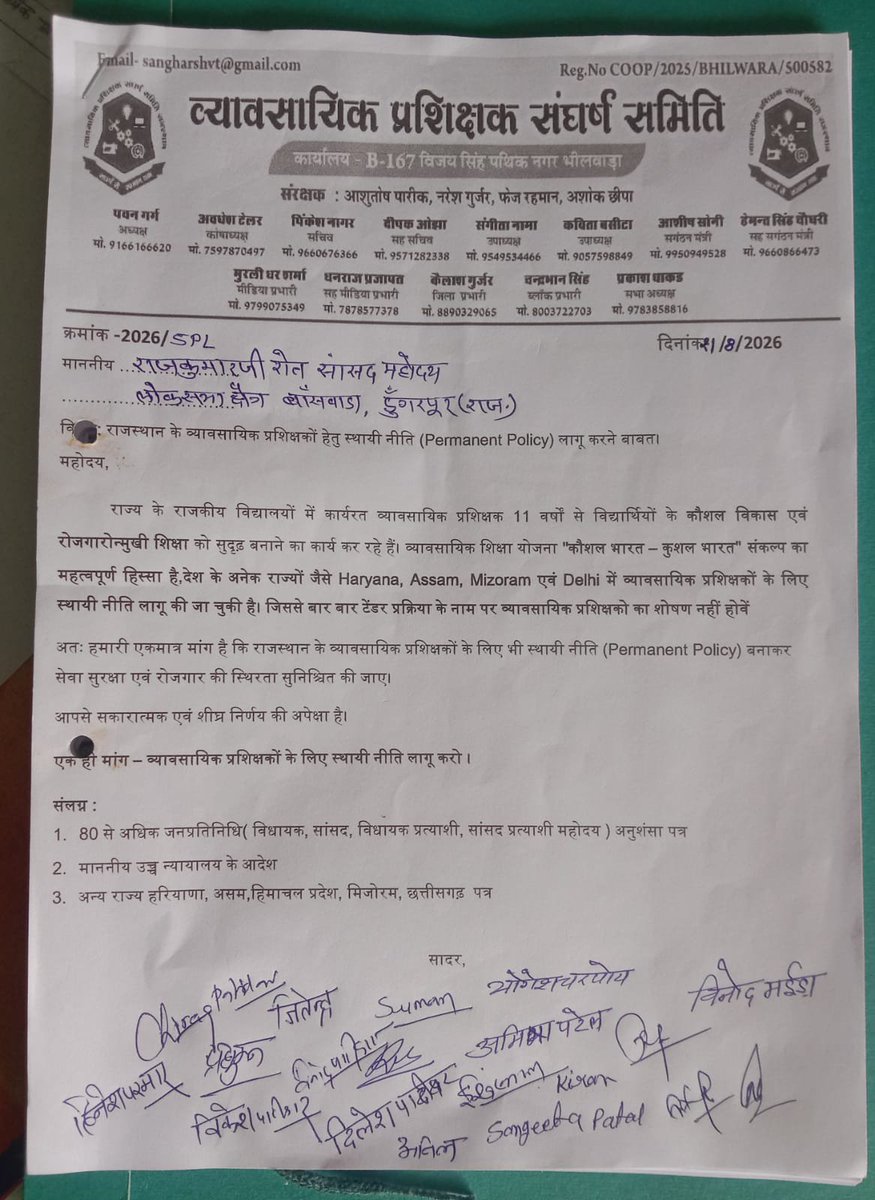 Email- sangharshvt@gmail.com
Reg.No COOP/2025/BHILWARA/500582
व्यावसायिक प्रशिक्षक संघर्ष समिति
कार्यालय - B-167 विजय सिंह पथिक नगर भीलवाड़ा
संरक्षक : आशुतोष पारीक, नरेश गुर्जर, फेज रहमान, अशोक छीपा
पवन गर्ग अवधेश टेलर पिंकेश नागर दीपक ओझा संगीता नामा कविता बसीटा आशीष सोनी हेमन्त सिंह चौधरी
अध्यक्ष कोषाध्यक्ष सचिव सह सचिव उपाध्यक्ष उपाध्यक्ष संगठन मंत्री सह संगठन मंत्री
मो. 9166166620 मो. 7597870497 मो. 9660676366 मो. 9571282338 मो. 9549534466 मो. 9057598849 मो. 9950949528 मो. 9660866473
मुरली धर शर्मा धनराज प्रजापत कैलाश गुर्जर चन्द्रभान सिंह प्रकाश धाकड
मीडिया प्रभारी सह मीडिया प्रभारी जिला प्रभारी ब्लॉक प्रभारी सभा अध्यक्ष
मो. 9799075349 मो. 7878577378 मो. 8890329065 मो. 8003722703 मो. 9783858816
क्रमांक -2026/SPL
दिनांक 21/8/2026
माननीय ...राजकुमारजी रोत सांसद महोदय
लोकसभा क्षेत्र बाँसवाडा, डुँगरपुर (राज.)
राजस्थान के व्यावसायिक प्रशिक्षकों हेतु स्थायी नीति (Permanent Policy) लागू करने बाबत।
महोदय,
राज्य के राजकीय विद्यालयों में कार्यरत व्यावसायिक प्रशिक्षक 11 वर्षों से विद्यार्थियों के कौशल विकास एवं
रोजगारोन्मुखी शिक्षा को सुदृढ़ बनाने का कार्य कर रहे हैं। व्यावसायिक शिक्षा योजना "कौशल भारत – कुशल भारत" संकल्प का
महत्वपूर्ण हिस्सा है,देश के अनेक राज्यों जैसे Haryana, Assam, Mizoram एवं Delhi में व्यावसायिक प्रशिक्षकों के लिए
स्थायी नीति लागू की जा चुकी है। जिससे बार बार टेंडर प्रक्रिया के नाम पर व्यावसायिक प्रशिक्षको का शोषण नहीं होवें
अतः हमारी एकमात्र मांग है कि राजस्थान के व्यावसायिक प्रशिक्षकों के लिए भी स्थायी नीति (Permanent Policy) बनाकर
सेवा सुरक्षा एवं रोजगार की स्थिरता सुनिश्चित की जाए।
आपसे सकारात्मक एवं शीघ्र निर्णय की अपेक्षा है।
एक ही मांग – व्यावसायिक प्रशिक्षकों के लिए स्थायी नीति लागू करो ।
संलग्न :
1. 80 से अधिक जनप्रतिनिधि( विधायक, सांसद, विधायक प्रत्याशी, सांसद प्रत्याशी महोदय ) अनुशंसा पत्र
2. माननीय उच्च न्यायालय के आदेश
3. अन्य राज्य हरियाणा, असम,हिमाचल प्रदेश, मिजोरम, छत्तीसगढ़ पत्र
सादर,
जितेन्द्र Suman विनोद
अनिल Sangeeta Patel Kiran